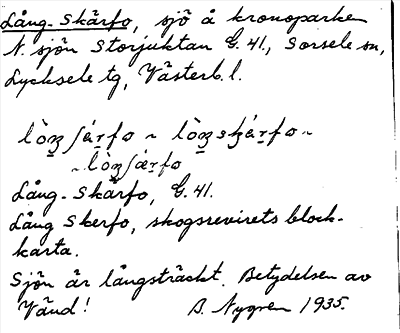 Lång-Skärfo, sjö å kronoparken
N. sjön Storjuktan G. 41., Sorsele sn,
Lycksele tg, Västerb. l.
lòŋʃá̱rfo ~ lòŋsʒárfo ~
~ lòŋʃárfo
Lång-Skärfo, G. 41.
Lång Skerfo, skogsrevirets block-
karta.
Sjön är långsträckt. Betydelsen av
Vänd! B. Nygren 1935.